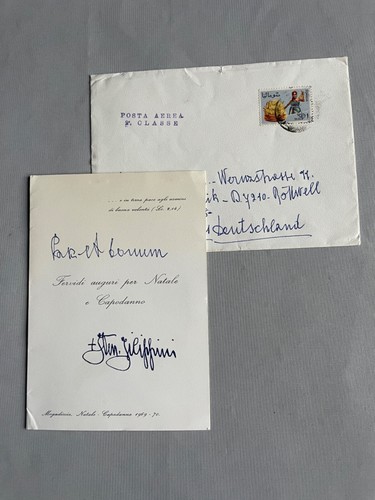 POSTA AEREA
Iª CLASSE
Wernzstrasse 11
D7210 Rottweil
Deutschland
... e in terra pace agli uomini
di buona volontà (Lc. 2,14)
Pax et bonum
Fervidi auguri per Natale
e Capodanno
Filippini
Mogadiscio, Natale - Capodanno 1969 - 70.